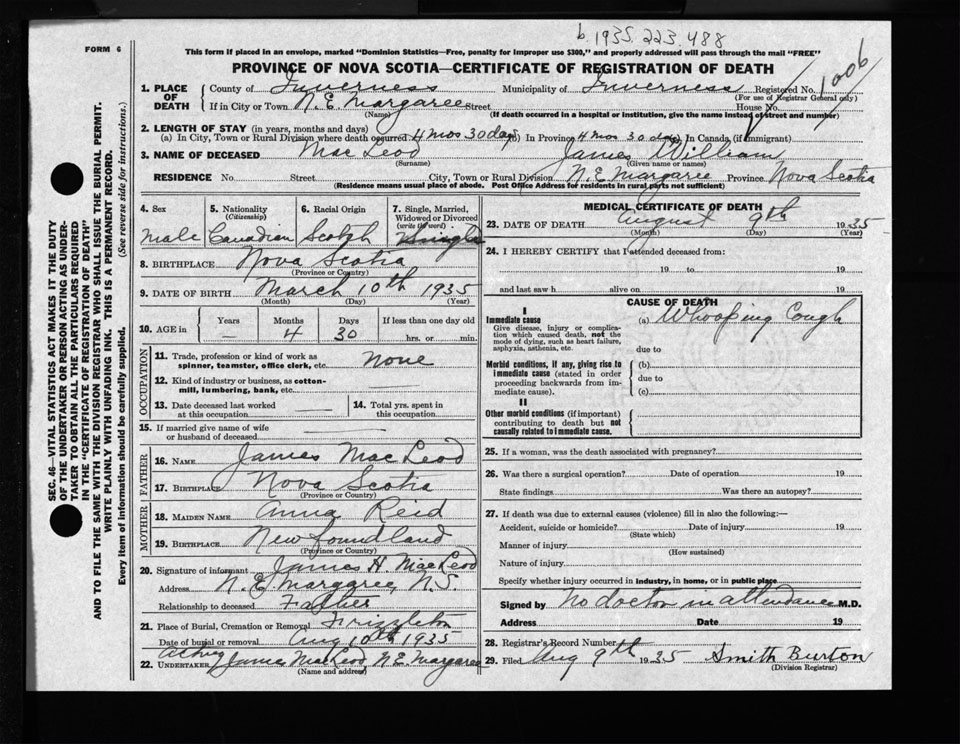 b. 1935. 223. 488
FORM 6
This form if placed in an envelope, marked "Dominion Statistics—Free, penalty for improper use $300," and properly addressed will pass through the mail "FREE"
PROVINCE OF NOVA SCOTIA—CERTIFICATE OF REGISTRATION OF DEATH
1006
1. PLACE OF DEATH County of Inverness Municipality of Inverness Registered No.
(For use of Registrar General only)
If in City or Town N. E. Margaree Street House No.
(Name) (If death occurred in a hospital or institution, give the name instead of street and number)
2. LENGTH OF STAY (in years, months and days)
(a) In City, Town or Rural Division where death occurred 4 mos 30 days (b) In Province 4 mos 30 days (c) In Canada (if immigrant)
3. NAME OF DECEASED Mac Leod James William
(Surname) (Given name or names)
RESIDENCE No. Street City, Town or Rural Division N. E Margaree Province Nova Scotia
(Residence means usual place of abode. Post Office Address for residents in rural parts not sufficient)
SEC. 46—VITAL STATISTICS ACT MAKES IT THE DUTY
OF THE UNDERTAKER OR PERSON ACTING AS UNDER-
TAKER TO OBTAIN ALL THE PARTICULARS REQUIRED
IN THE "CERTIFICATE OF REGISTRATION OF DEATH"
AND TO FILE THE SAME WITH THE DIVISION REGISTRAR WHO SHALL ISSUE THE BURIAL PERMIT.
WRITE PLAINLY WITH UNFADING INK. THIS IS A PERMANENT RECORD.
Every item of information should be carefully supplied. (See reverse side for instructions.)
4. Sex 5. Nationality (Citizenship) 6. Racial Origin 7. Single, Married, Widowed or Divorced (write the word)
Male Canadian Scotch Single
8. BIRTHPLACE Nova Scotia
(Province or Country)
9. DATE OF BIRTH March 10th 1935
(Month) (Day) (Year)
10. AGE in Years Months Days If less than one day old
— 4 30 hrs. or min.
OCCUPATION
11. Trade, profession or kind of work as spinner, teamster, office clerk, etc. None
12. Kind of industry or business, as cotton-mill, lumbering, bank, etc.
13. Date deceased last worked at this occupation 14. Total yrs. spent in this occupation
15. If married give name of wife or husband of deceased
FATHER
16. NAME James Mac Leod
17. BIRTHPLACE Nova Scotia
(Province or Country)
MOTHER
18. MAIDEN NAME Anna Reid
19. BIRTHPLACE Newfoundland
(Province or Country)
20. Signature of informant James H. MacLeod
Address N. E Margaree, N.S.
Relationship to deceased Father
21. Place of Burial, Cremation or Removal Frizzleton
Date of burial or removal Aug 10th 1935
Acting
22. UNDERTAKER James MacLeod, N E Margaree
(Name and address)
MEDICAL CERTIFICATE OF DEATH
23. DATE OF DEATH August 9th 1935
(Month) (Day) (Year)
24. I HEREBY CERTIFY that I attended deceased from:
19 to 19
and last saw h alive on 19
CAUSE OF DEATH
I
Immediate cause (a) Whooping Cough
Give disease, injury or complication which caused death, not the mode of dying, such as heart failure, asphyxia, asthenia, etc.
due to
Morbid conditions, if any, giving rise to immediate cause (stated in order proceeding backwards from immediate cause).
(b)
due to
(c)
II
Other morbid conditions (if important) contributing to death but not causally related to immediate cause.
25. If a woman, was the death associated with pregnancy?
26. Was there a surgical operation? Date of operation 19
State findings Was there an autopsy?
27. If death was due to external causes (violence) fill in also the following:—
Accident, suicide or homicide? Date of injury 19
(State which)
Manner of injury
(How sustained)
Nature of injury
Specify whether injury occurred in industry, in home, or in public place
Signed by No doctor in attendance M.D.
Address Date 19
28. Registrar's Record Number
29. Filed Aug 9th 1935 Smith Burton
(Division Registrar)